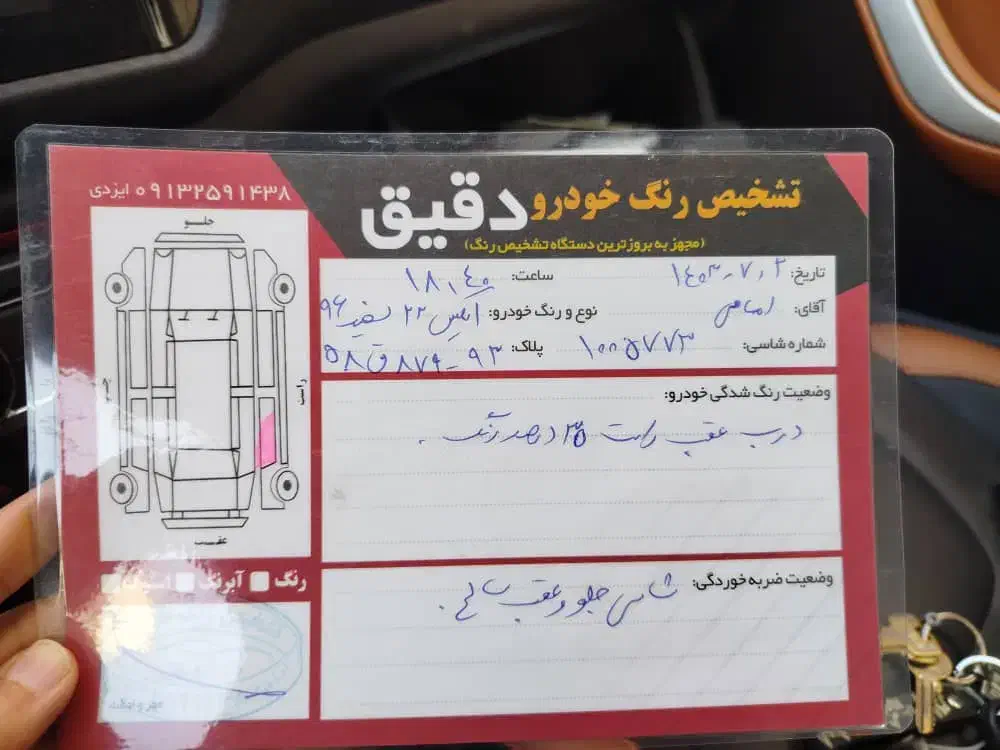 تشخیص رنگ خودرو دقیق
(مجهز به بروزترین دستگاه تشخیص رنگ)
۰۹۱۳۲۵۹۱۴۳۸ ایزدی
تاریخ: ۱۴۰۳٫۷٫۲ ساعت: ۱۸٫۴۰
آقای: امامی نوع و رنگ خودرو: ایکس ۲۲ سفید ۹۶
شماره شاسی: ۱۰۰۵۷۷۳ پلاک: ۹۳ - ۸۷۹ ق ۵۸
وضعیت رنگ شدگی خودرو:
درب عقب راست ۳۵ درصد رنگ .
وضعیت ضربه خوردگی: شاسی جلو و عقب سالم .
جلــو
راست
عقــب
رنگ آبرنگ
مهر و امضاء